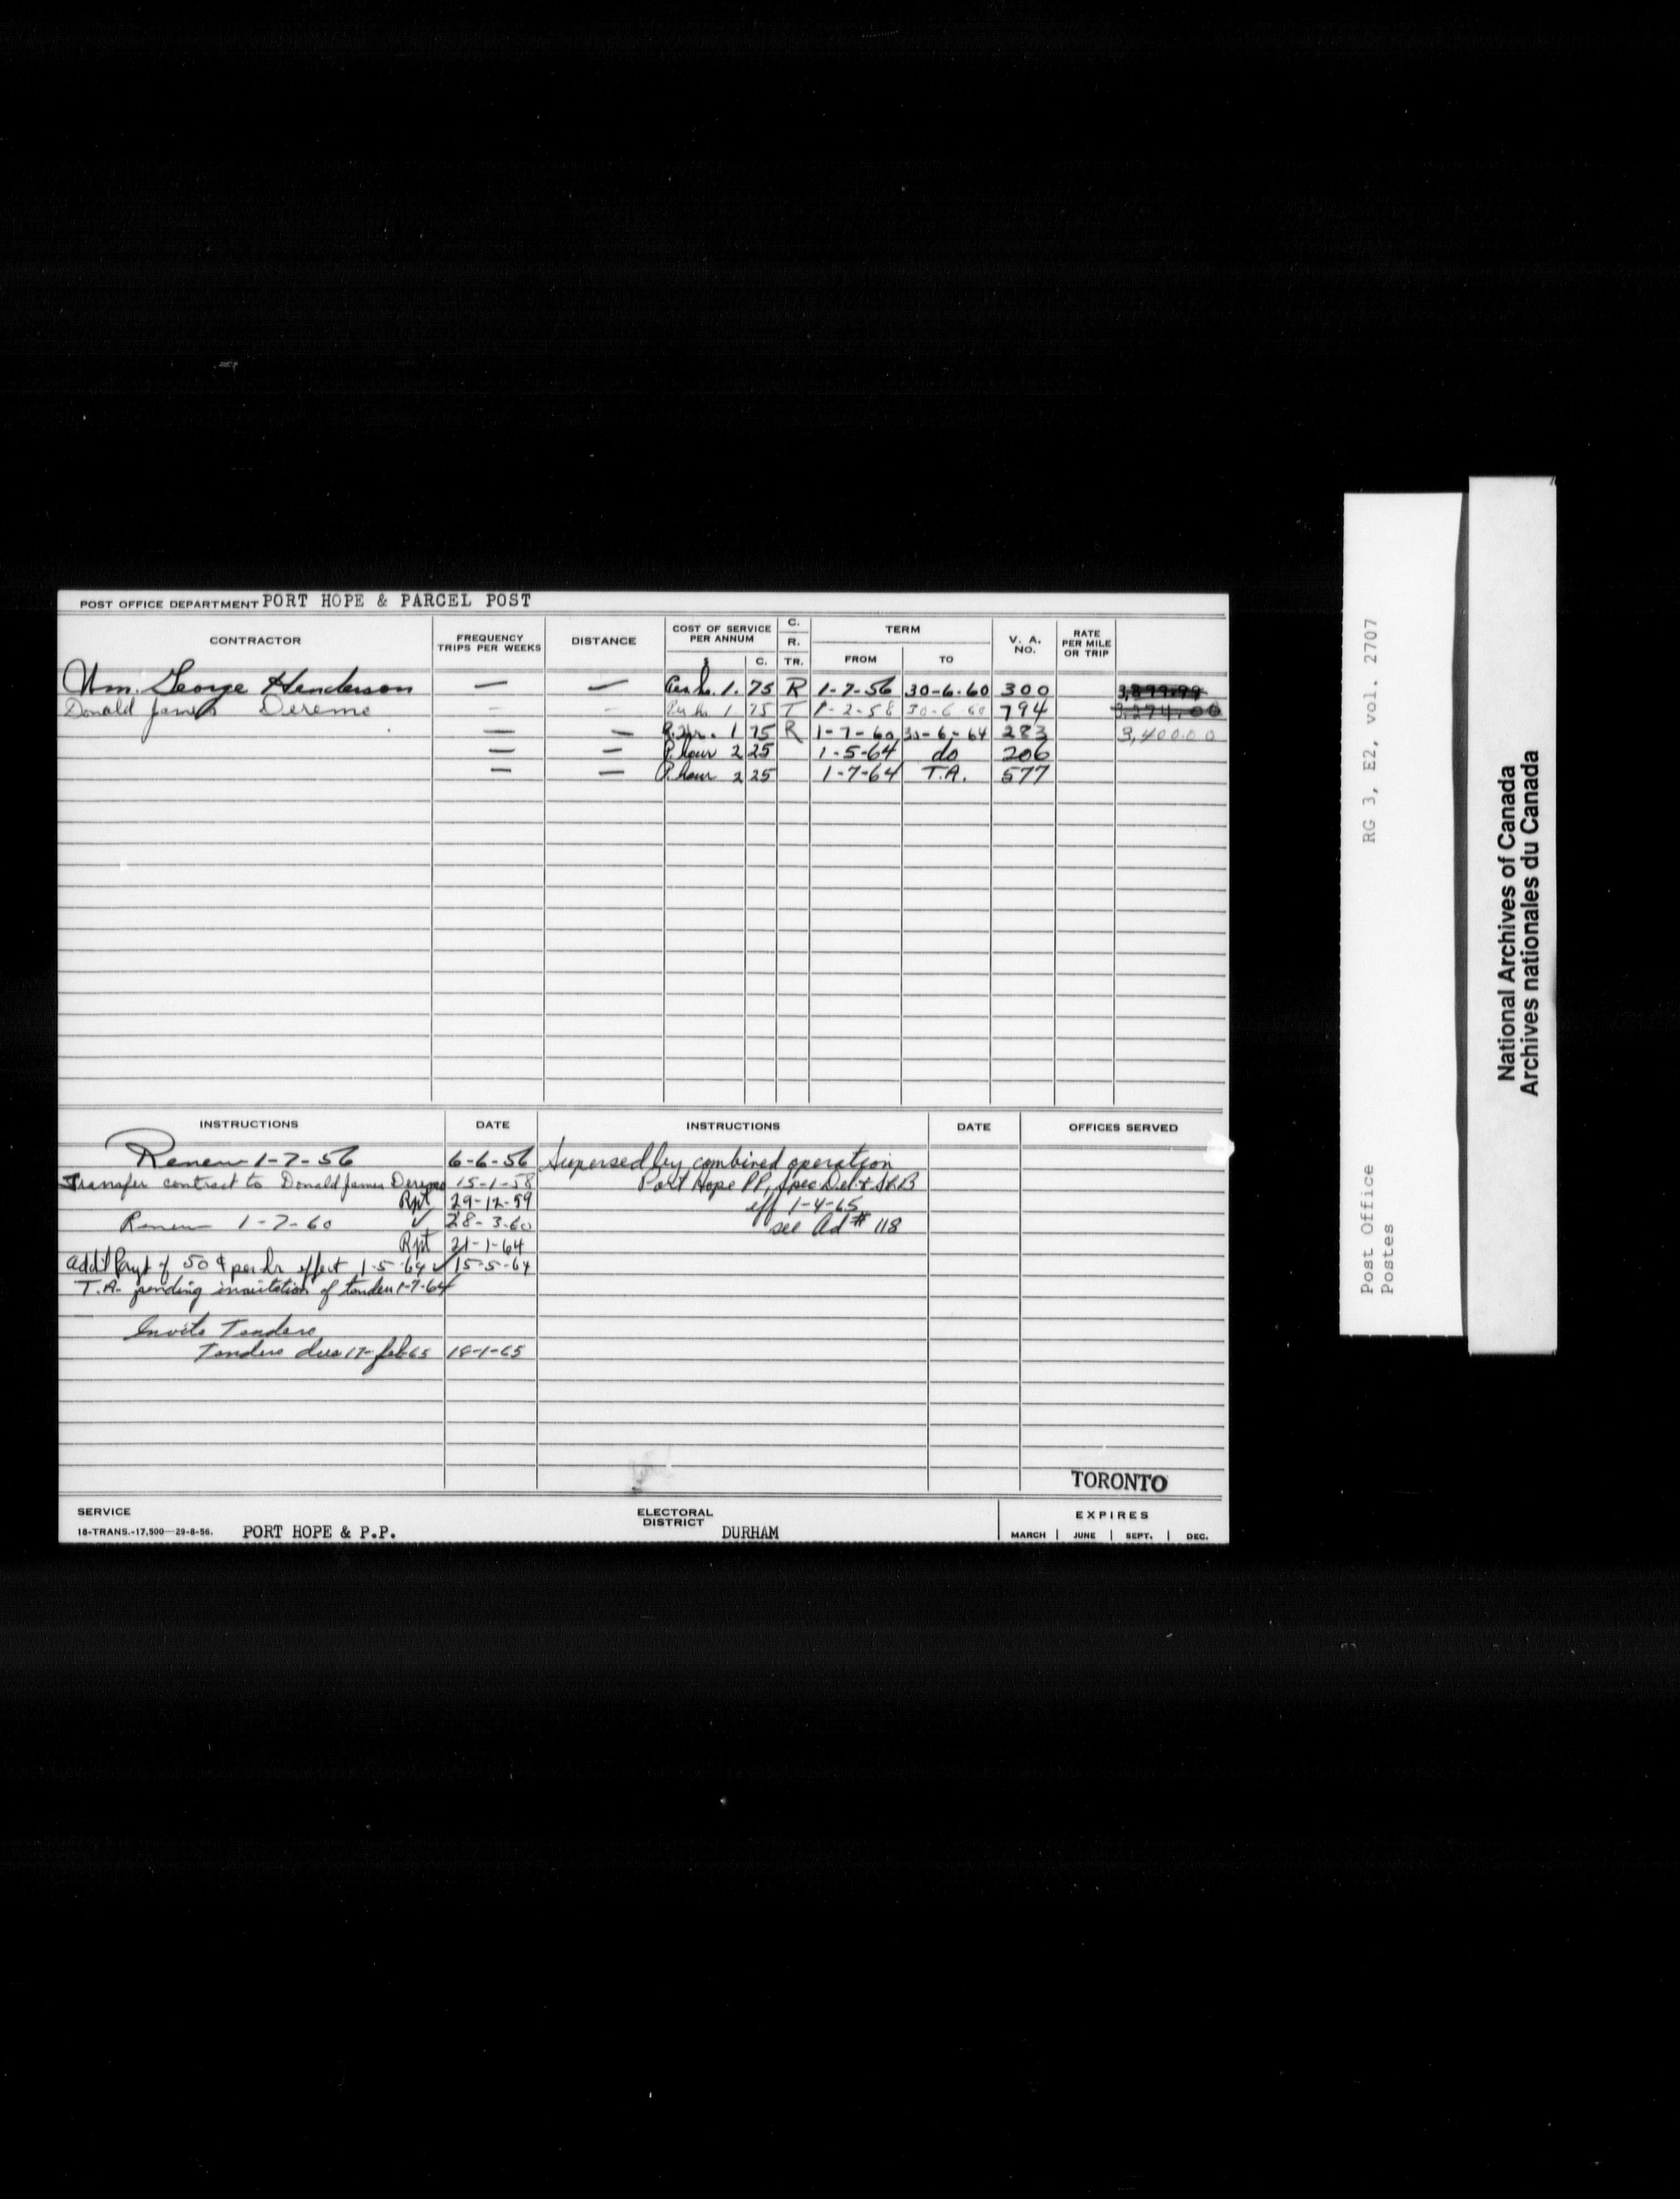 POST OFFICE DEPARTMENT PORT HOPE & PARCEL POST
CONTRACTOR FREQUENCY TRIPS PER WEEKS DISTANCE COST OF SERVICE PER ANNUM C. C. R. TR. TERM FROM TO V. A. NO. RATE PER MILE OR TRIP
Wm. George Henderson — — Per hr. 1. 75 R 1-7-56 30-6-60 300
Donald James Dereme — — Per hr. 1 75 T 1-2-58 30-6-60 794 3,274.00
— — P. hr. 1 75 R 1-7-60 30-6-64 283 3,400.00
— — P. hour 2 25 1-5-64 do 206
— — P. hour 2 25 1-7-64 T.A. 577
INSTRUCTIONS DATE INSTRUCTIONS DATE OFFICES SERVED
Renew 1-7-56 6-6-56 Supersed by combined operation
Transfer contract to Donald James Dereme 15-1-58 Port Hope PP, Spec Del & SLB
Rpt 29-12-59 eff 1-4-65
Renew 1-7-60 ✓ 28-3-60 see Ad # 118
Rpt 21-1-64
Add'l Paymt of 50 ¢ per hr effect 1-5-64 ✓ 15-5-64
T.A. pending invitation of tenders 1-7-64
Invite Tenders
Tenders due 17-Feb-65 18-1-65
TORONTO
SERVICE ELECTORAL DISTRICT EXPIRES
18-TRANS.-17,500—29-8-56. PORT HOPE & P.P. DURHAM MARCH | JUNE | SEPT. | DEC.
RG 3, E2, vol. 2707
Post Office
Postes
National Archives of Canada
Archives nationales du Canada